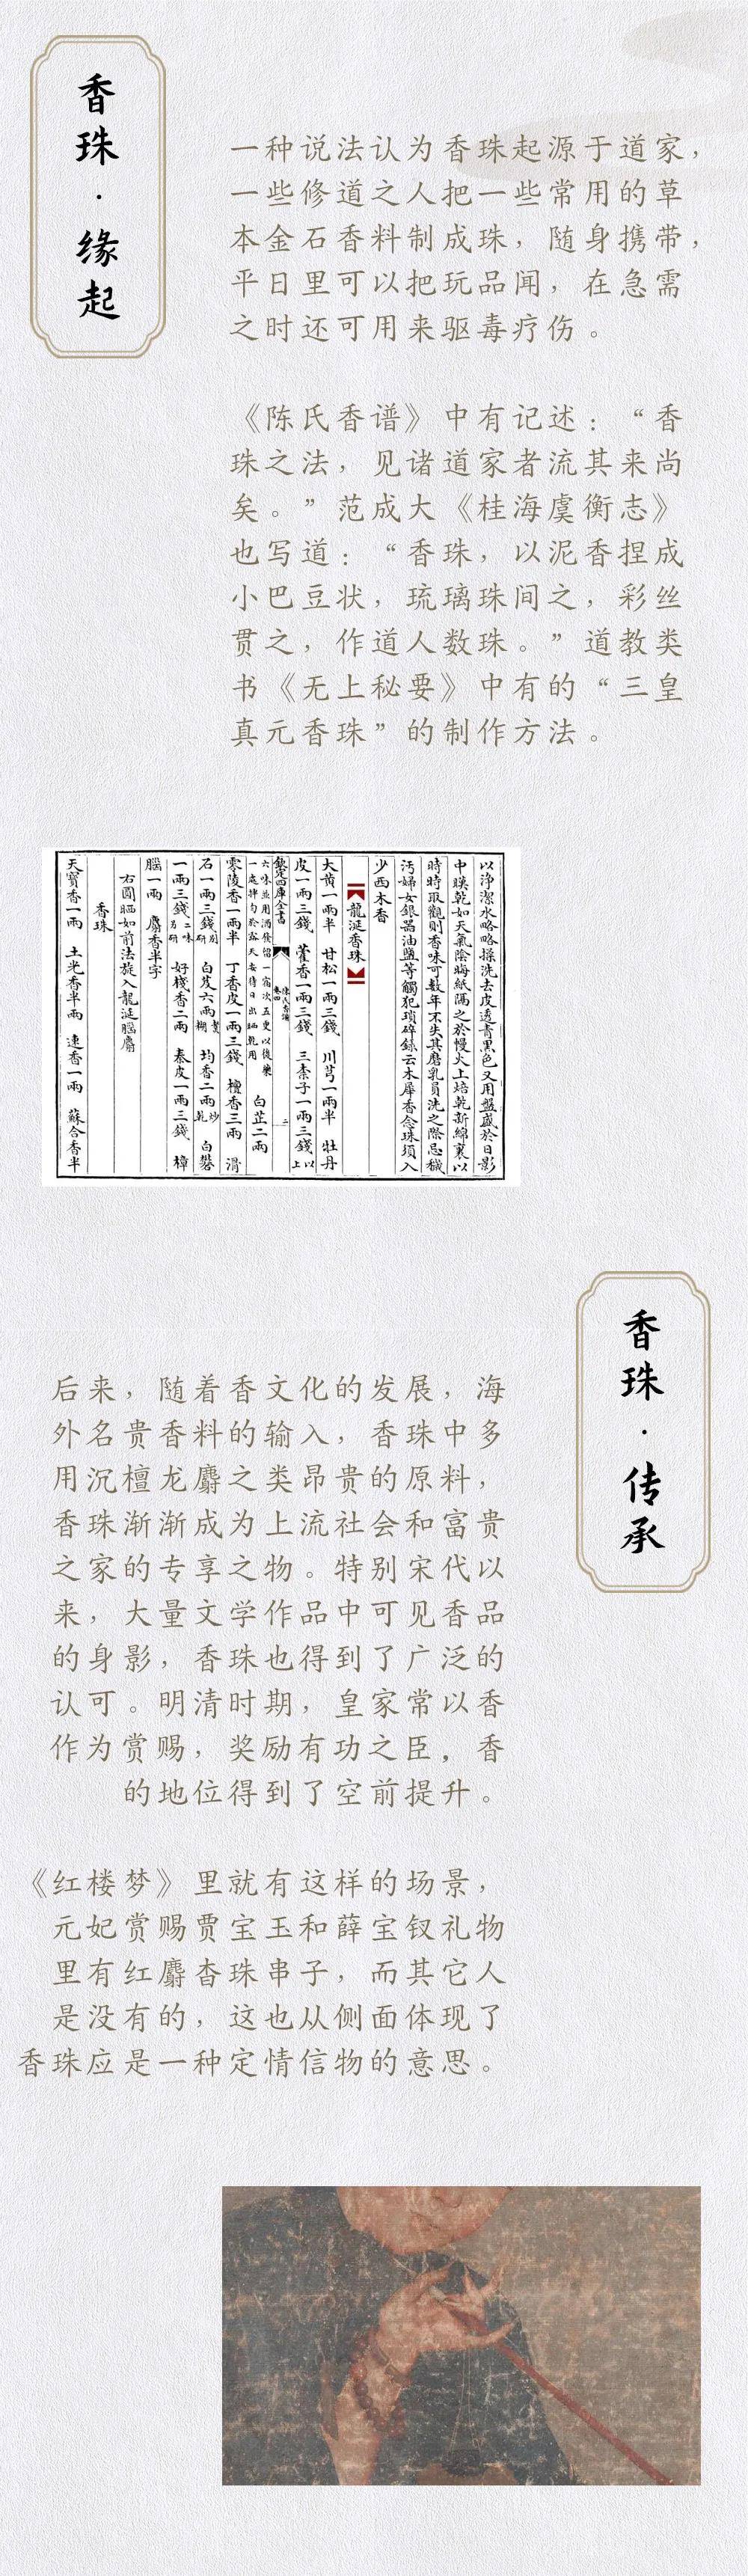 香珠·缘起
一种说法认为香珠起源于道家，
一些修道之人把一些常用的草
本金石香料制成珠，随身携带，
平日里可以把玩品闻，在急需
之时还可用来驱毒疗伤。
《陈氏香谱》中有记述：“香
珠之法，见诸道家者流其来尚
矣。”范成大《桂海虞衡志》
也写道：“香珠，以泥香捏成
小巴豆状，琉璃珠间之，彩丝
贯之，作道人数珠。”道教类
书《无上秘要》中有的“三皇
真元香珠”的制作方法。
以净潔水略略揉洗去皮透青黑色又用盤盛於日影
中䁠乾如天氣陰晦紙隔之於慢火上焙乾新綿裹以
時時取觀則香味可數年不失其磨乳員洗之際忌穢
汚婦女銀器油鹽等觸犯瑣碎錄云木犀香念珠須入
少西木香
龍涎香珠
大黄一兩半 甘松一兩三錢 川芎一兩半 牡丹
皮一兩三錢 藿香一兩三錢 三柰子一兩三錢以上
六味並用酒發留一宿次五更以後藥
一處拌匀於露天安待日出晒乾用 白芷二兩
欽定四庫全書
陳氏香譜
卷四
二
零陵香一兩半 丁香皮一兩三錢 檀香三兩 滑
石一兩三錢别研 白芨六兩煮糊 均香二兩炒乾 白礬
一兩三錢二味另研 好棧香二兩 秦皮一兩三錢 樟
腦一兩 麝香半字
右圓晒如前法旋入龍涎腦麝
香珠
天寶香一兩 土光香半兩 速香一兩 蘇合香半
香珠·传承
后来，随着香文化的发展，海
外名贵香料的输入，香珠中多
用沉檀龙麝之类昂贵的原料，
香珠渐渐成为上流社会和富贵
之家的专享之物。特别宋代以
来，大量文学作品中可见香品
的身影，香珠也得到了广泛的
认可。明清时期，皇家常以香
作为赏赐，奖励有功之臣，香
的地位得到了空前提升。
《红楼梦》里就有这样的场景，
元妃赏赐贾宝玉和薛宝钗礼物
里有红麝香珠串子，而其它人
是没有的，这也从侧面体现了
香珠应是一种定情信物的意思。